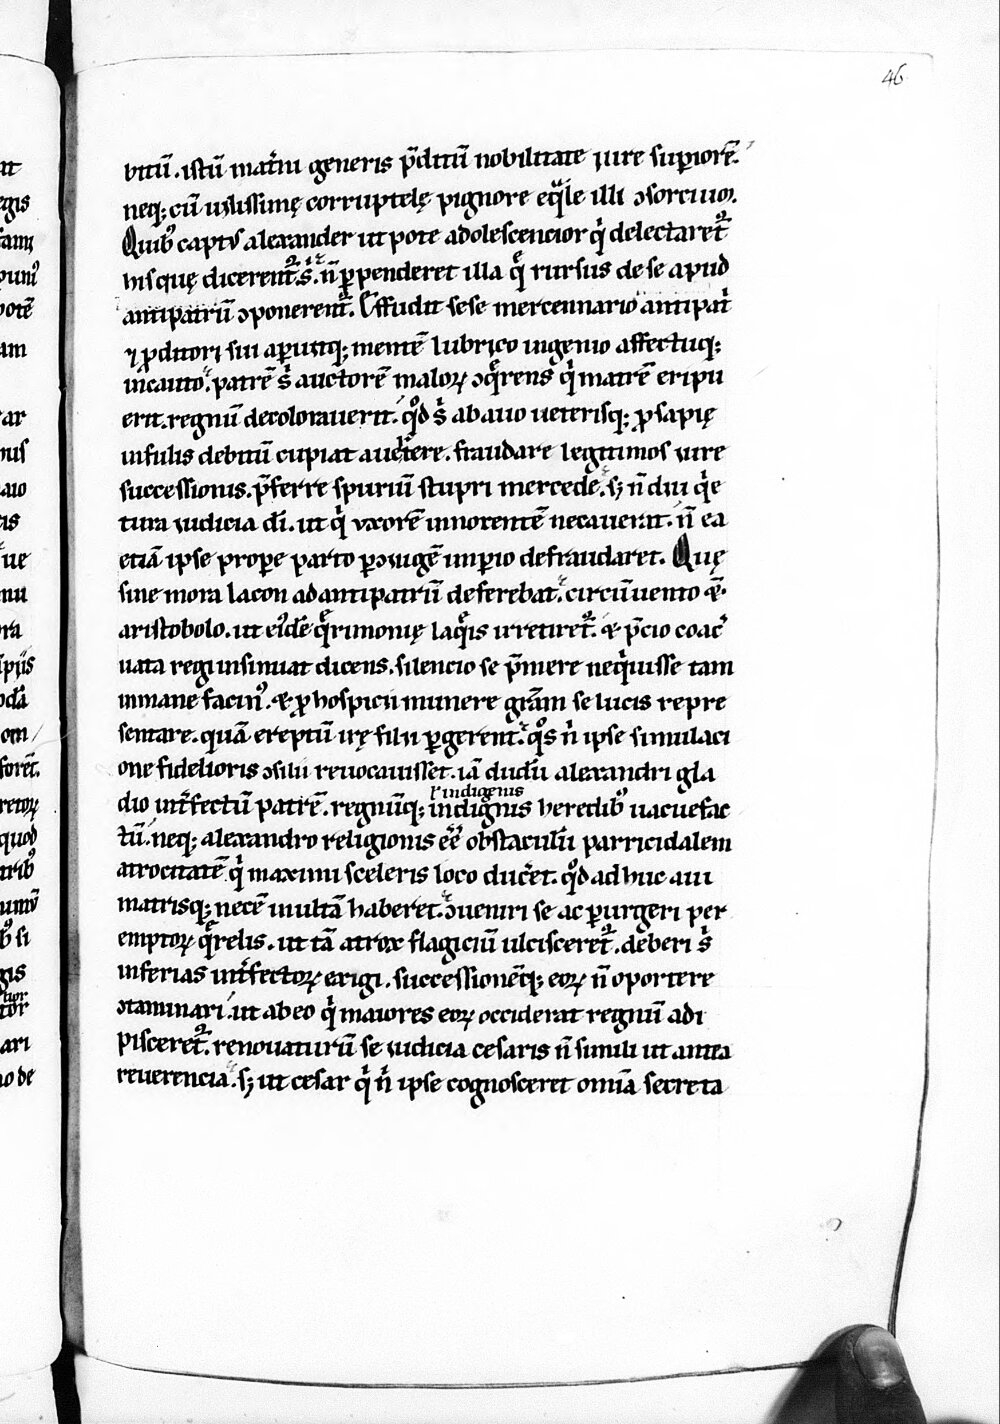 46
bitū. istū mat̄ni generis p̄ditū nobilitate iure supiorē.
neq; cū uilissimę corruptelę pignore eq̄le illi ↄsorciuɔ.
Quib; captꝰ alexander ut pote adolescencior q̇ delectaret᷑
hisquę dicerent᷑. s̓. n̄ ꝑpenderet illa q̄ rursus de se apud
antipatrū ↄponerent᷑. Effudit sese mercennario antipat̓
⁊ ꝓditori sui aꝑuitq; mentē lubrico ingenio affectuq;
incauto. patrē s̓ auctorē maloꝝ ↄq̄rens q̇ matrē eripu
erit. regnū decolorauerit. qd̄ s̓ ab auo ueterisq; ꝓsapię
infulis debitū cupiat auertere. fraudare legitimos iure
successionis. p̄ferre spuriū stupri mercede. sꝫ n̄ diu q̇e
tura iudicia dī. ut q̇ uxorē innocentē necauerit. n̄ ea
etiā ipse prope parto ꝑ ↄiugē imꝑio defraudaret. Quę
sine mora lacon ad antipatrū deferebat. circūuento &
aristobolo. ut eisdē q̄rimonię laq̇is irretiret᷑. & p̄cio coac̓
uata regi insinuat dicens. silencio se p̄mere neq̇uisse tam
inmane facinꝰ. & ꝓ hospicii munere gr̄am se lucis repre
sentare. quam ereptū irę filii ꝑgerent. qͦs n̓ ipse simulaci
one fidelioris ↄsilii reuocauisset. iā dudū alexandri gla
dio int̓fectū patrē. regnūq;
ł indigenis
indignis heredib; uacuefac
tū. neq; alexandro religionis eē obstaculū parricidalem
atrocitatē. q̇ maximi sceleris loco ducet. qd̄ ad huc aui
matrisq; necē inultā haberet. ↄueniri se ac ꝑurgeri per
emptoꝝ q̄relis. ut tā atrox flagiciū ulcisceret᷑. deberi s̓
inferias int̓fectoꝝ exigi. successionēq; eoꝝ n̄ oportere
ↄtaminari. ut ab eo q̇ maiores eoꝝ occiderat regnū adi
pisceret᷑. renouaturū se iudicia cesaris n̄ simili ut antea
reuerencia. sꝫ ut cesar q̇ n̓ ipse cognosceret omīa secreta